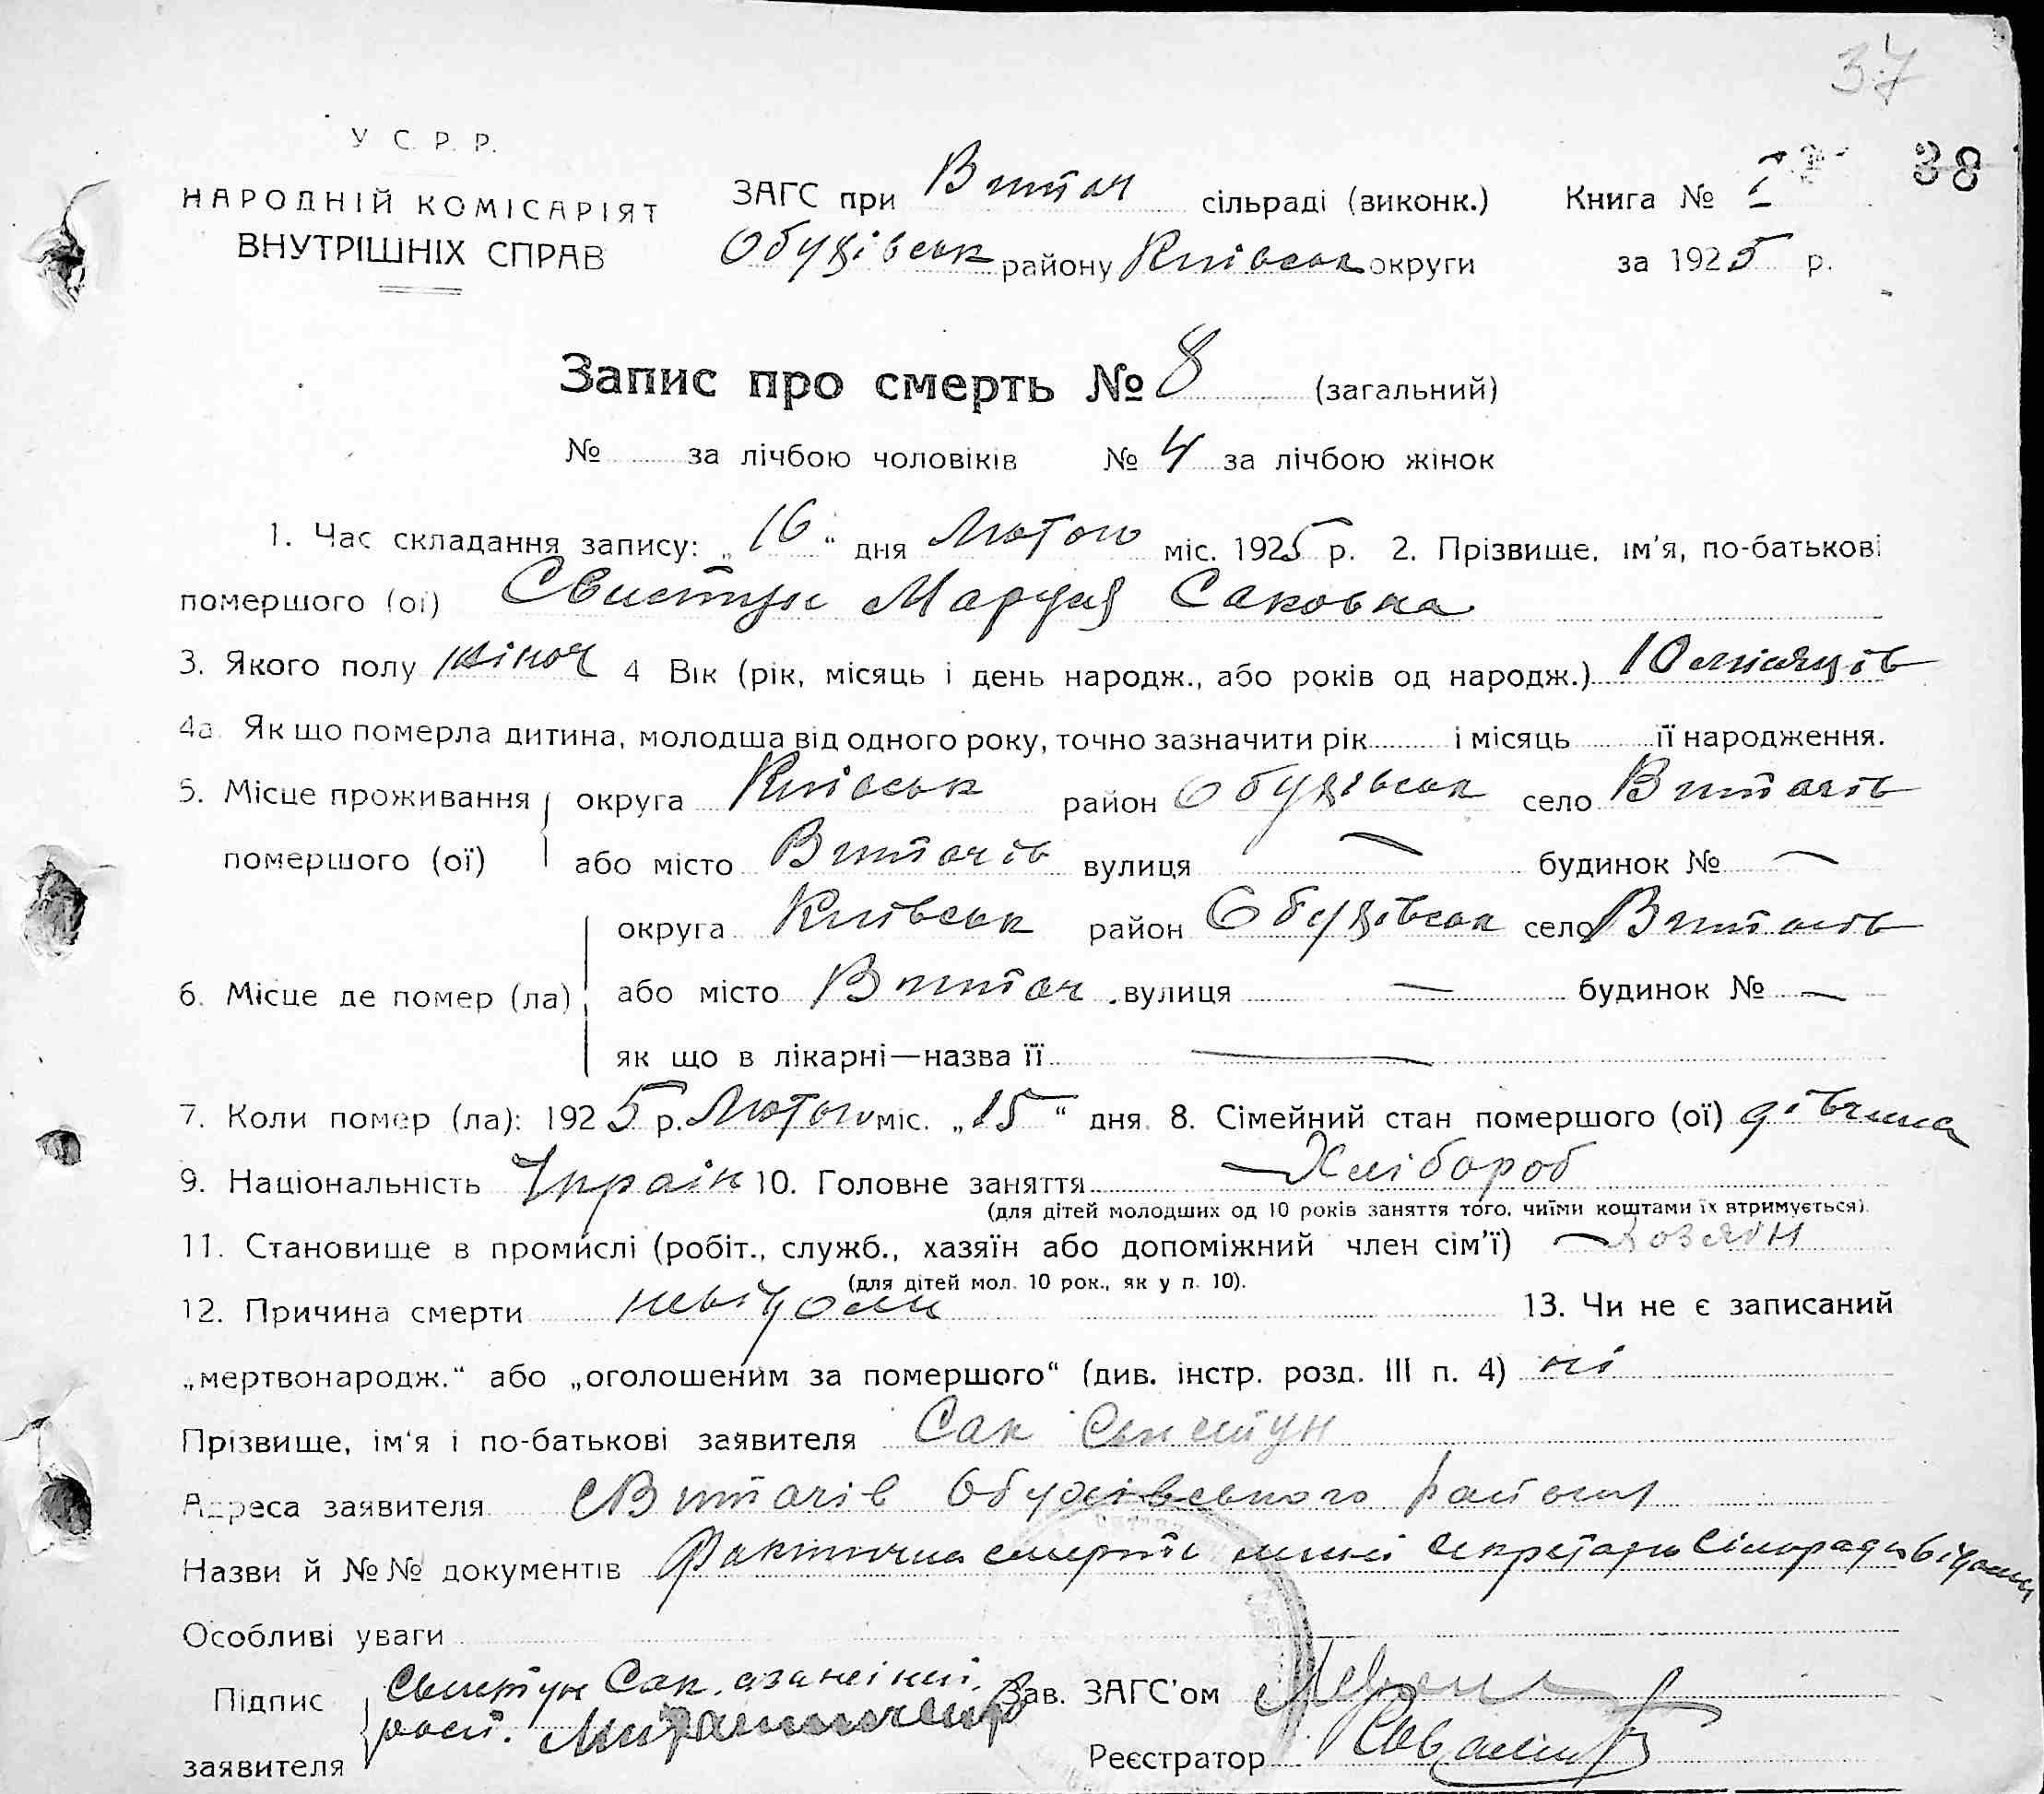 37
38
У С. Р. Р.
НАРОДНІЙ КОМІСАРІЯТ
ВНУТРІШНІХ СПРАВ
ЗАГС при Витач сільраді (виконк.) Книга №
Обухівськ району Київськ округи за 1925 р.
Запис про смерть № 8 (загальний)
№ за лічбою чоловіків № 4 за лічбою жінок
1. Час складання запису: „16“ дня Лютого міс. 1925 р. 2. Прізвище, ім'я, по-батькові
помершого (ої) Свистун Маруся Саковна
3. Якого полу жіноч 4 Вік (рік, місяць і день народж., або років од народж.) 10 місяців
4а. Як що померла дитина, молодша від одного року, точно зазначити рік і місяць її народження.
5. Місце проживання округа Київськ район Обухівськ село Витачів
помершого (ої) або місто Витачів вулиця — будинок № —
округа Київськ район Обухівськ село Витачів
6. Місце де помер (ла) або місто Витач вулиця — будинок № —
як що в лікарні—назва її —
7. Коли помер (ла): 1925 р. Лютого міс. „15“ дня. 8. Сімейний стан помершого (ої) дівчина
9. Національність Украін 10. Головне заняття — Хлібороб
(для дітей молодших од 10 років заняття того, чиїми коштами їх втримується).
11. Становище в промислі (робіт., служб., хазяїн або допоміжний член сім'ї) — Хозяїн
(для дітей мол. 10 рок., як у п. 10).
12. Причина смерти невідома 13. Чи не є записаний
„мертвонародж.“ або „оголошеним за помершого“ (див. інстр. розд. III п. 4) ні
Прізвище, ім'я і по-батькові заявителя Сак Свистун
Адреса заявителя с Витачів Обухівського району
Назви й №№ документів Фактична смерть мені секретарю Сільради відома
Особливі уваги
Підпис Свистун Сак Зав. ЗАГС'ом
заявителя Реєстратор